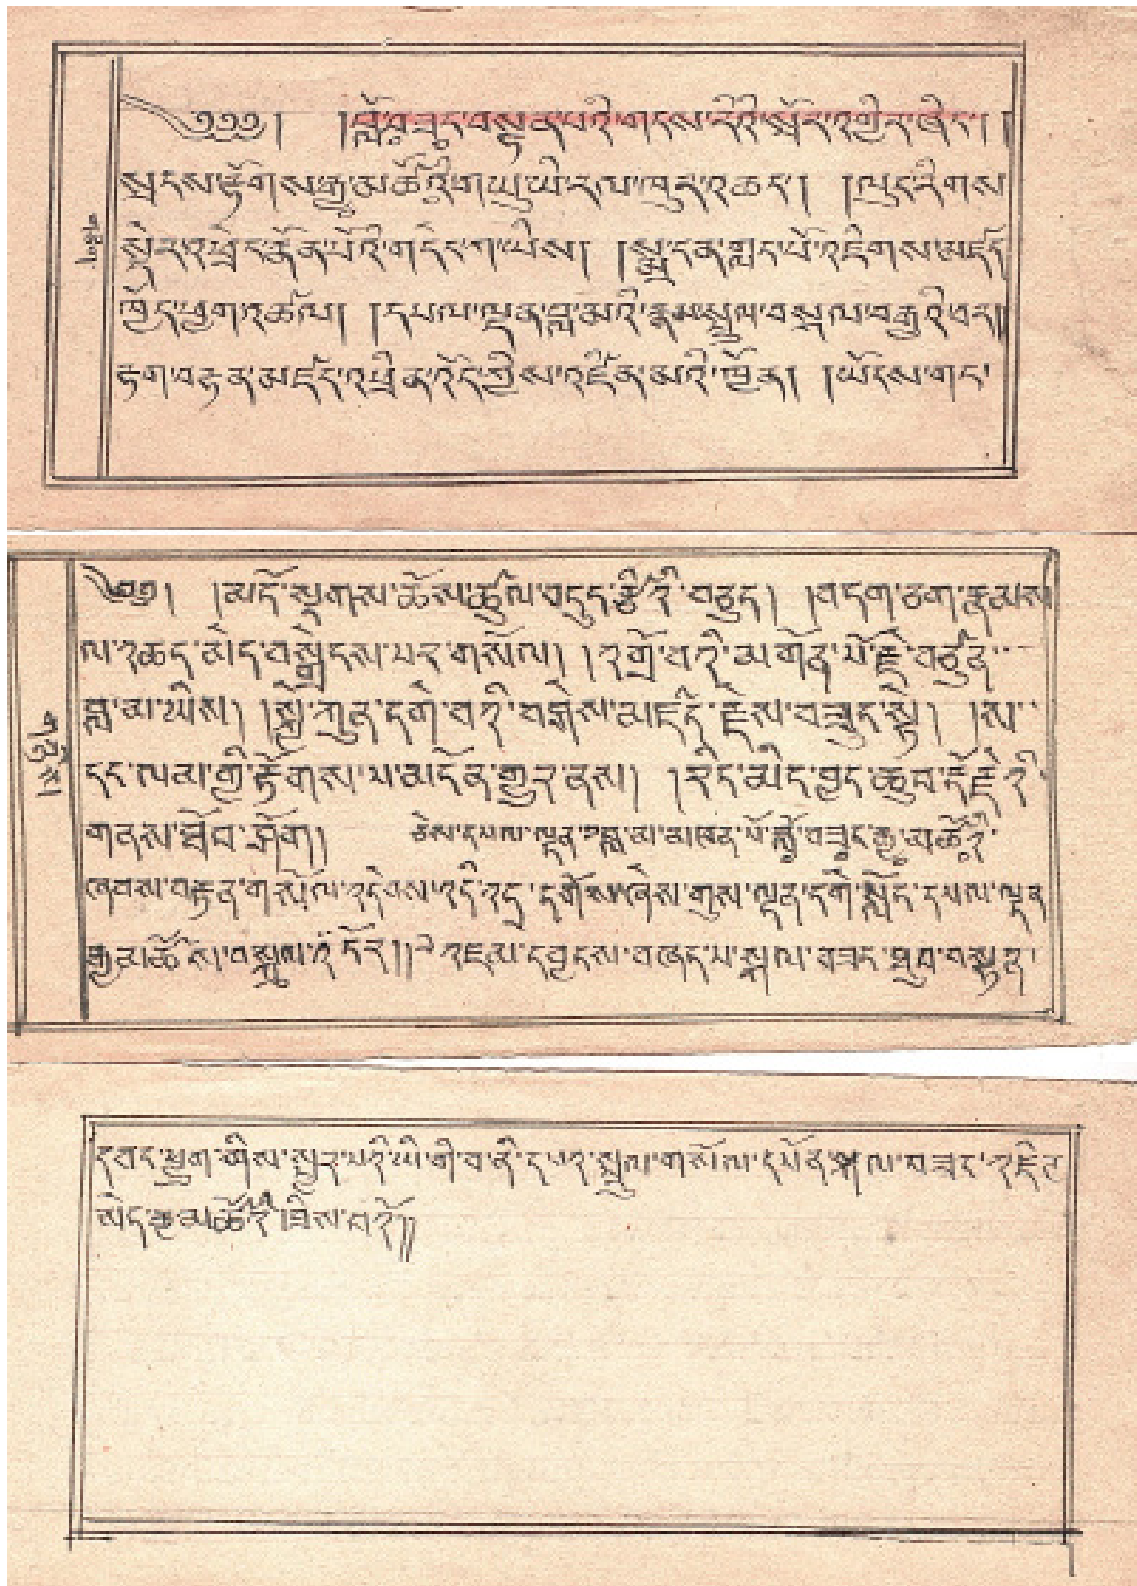 ༄༅༅། །བློ་བཟང་བསྟན་པའི་གངས་རིའི་སྤོར་འགྱིང་ཞིང་། །
སྤངས་རྟོགས་རྒྱ་མཚོའི་གཡུ་ཡི་རལ་ཁུར་འཆང་། །ལུང་རིགས་
སྡེར་འཕྲེང་རྣོན་པོའི་གདེངས་ཀ་ཡིས། །སྨྲ་ངན་གླང་པོ་འཇིགས་མཛད་
ཁྱོད་ཕྱག་འཚལ། །དཔལ་ལྡན་བླ་མའི་རྣམ་སྤྲུལ་བསྐལ་བརྒྱའི་བར། །
རྟག་བརྟན་མཛད་འཕྲིན་འོད་ཀྱིས་འཛིན་མའི་ཁྱོན། །ཡོངས་གང་
གཅིག
༄༅། །མདོ་སྔགས་ཆོས་ཚུལ་བདུད་རྩིའི་བཅུད། །བདག་ཅག་རྣམས་
ལ་འཆད་མེད་བསྒྲེངས་པར་གསོལ། །འགྲོ་བའི་མགོན་པོ་རྗེ་བཙུན་
བླ་མ་ཡིས། །སྐྱེ་ཀུན་དགེ་བའི་བཤེས་མཛད་རྗེས་བཟུང་སྟེ། །ས་
དང་ལམ་གྱི་རྟོགས་པ་མངོན་གྱུར་ནས། །རིང་མིན་བྱང་ཆུབ་རྡོ་རྗེའི་
གནས་ཐོབ་ཤོག །ཅེས་དཔལ་ལྡན་བླ་མ་མཁན་པོ་བློ་བཟང་རྒྱ་མཚོའི་
ཞབས་བརྟན་གསོལ་འདེབས་འདི་འདྲ་དགོས་ཞེས་གུས་ལྡན་དགེ་སློང་དཔལ་ལྡན་
རྒྱ་མཚོས་བསྐུལ་ངོར། །འཇམ་དབྱངས་བཞད་པ་སྐལ་བཟང་ཐུབ་བསྟན་
དབང་ཕྱུག་གིས་སྤྱར་བའི་ཡི་གེ་བ་ནི་དཔར་སྤྲུལ་གསོལ་དཔོན་སྐལ་བཟང་འཇིགས་
མེད་རྒྱ་མཚོའི་བྲིས་པའོ།།